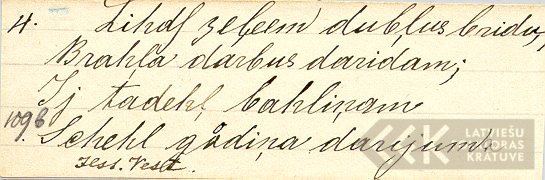 4. Lihds zeļeem dubļus bridu,
Brahļa darbus daridam;
Ij tadehļ bahliņam
1096
Schehl godiņa darijum
Jess. Vest.
LATVIEŠU
FOLKLORAS
KRĀTUVE